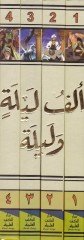 4 3 2 1
ألف ليلة
وليلة
٤ ٣ ٢ ١